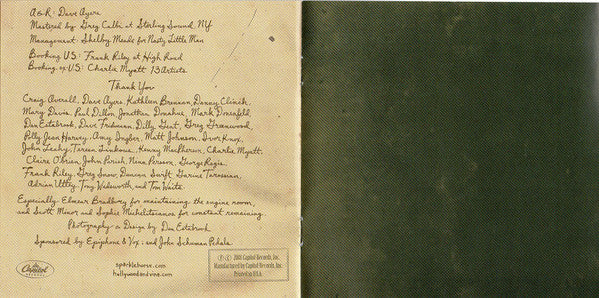 A&R: Dave Ayers
Mastered by Greg Calbi at Sterling Sound, NY
Management: Shelby Meade for Nasty Little Man
Booking US: Frank Riley at High Road
Booking ex-US: Charlie Myatt 13 Artists.
Thank You
Craig Averall, Dave Ayers, Kathleen Brennan, Danny Clinch,
Mary Davis, Paul Dillon, Jonathan Donahue, Mark Donenfeld,
Dan Estabrook, Dave Fridmann, Dilly Gent, Greg Greenwood,
Polly Jean Harvey, Amy Ingber, Matt Johnson, Ivor Knox,
John Leahy, Teresa Linkous, Kenny MacPherson, Charlie Myatt,
Claire O'Brien, John Parish, Nina Persson, George Regis,
Frank Riley, Greg Snow, Duncan Swift, Garine Tarossian,
Adrian Utley, Tony Wadsworth and Tom Waits.
Especially Elmear Bradbury for maintaining the engine room,
and Scott Minor and Sophie for constant remaining.
Photography & Design by Dan Estabrook
Sponsored by Epiphone & Vox; and John Schuman
sparklehorse.com
hollywoodandvine.com
Capitol
℗ © 2001 Capitol Records, Inc.
Manufactured by Capitol Records, Inc.
Printed in U.S.A.